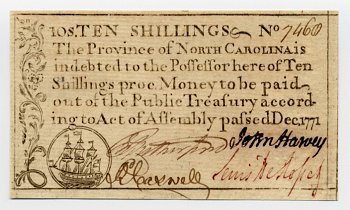 10S. TEN SHILLINGS No 7460
The Province of NORTH CAROLINA is
indebted to the Possessor here of Ten
Shillings proc. Money to be paid
out of the Public Treasury accord-
ing to Act of Assembly passed Dec. 1771
John Harvey
Lewis De Rosset